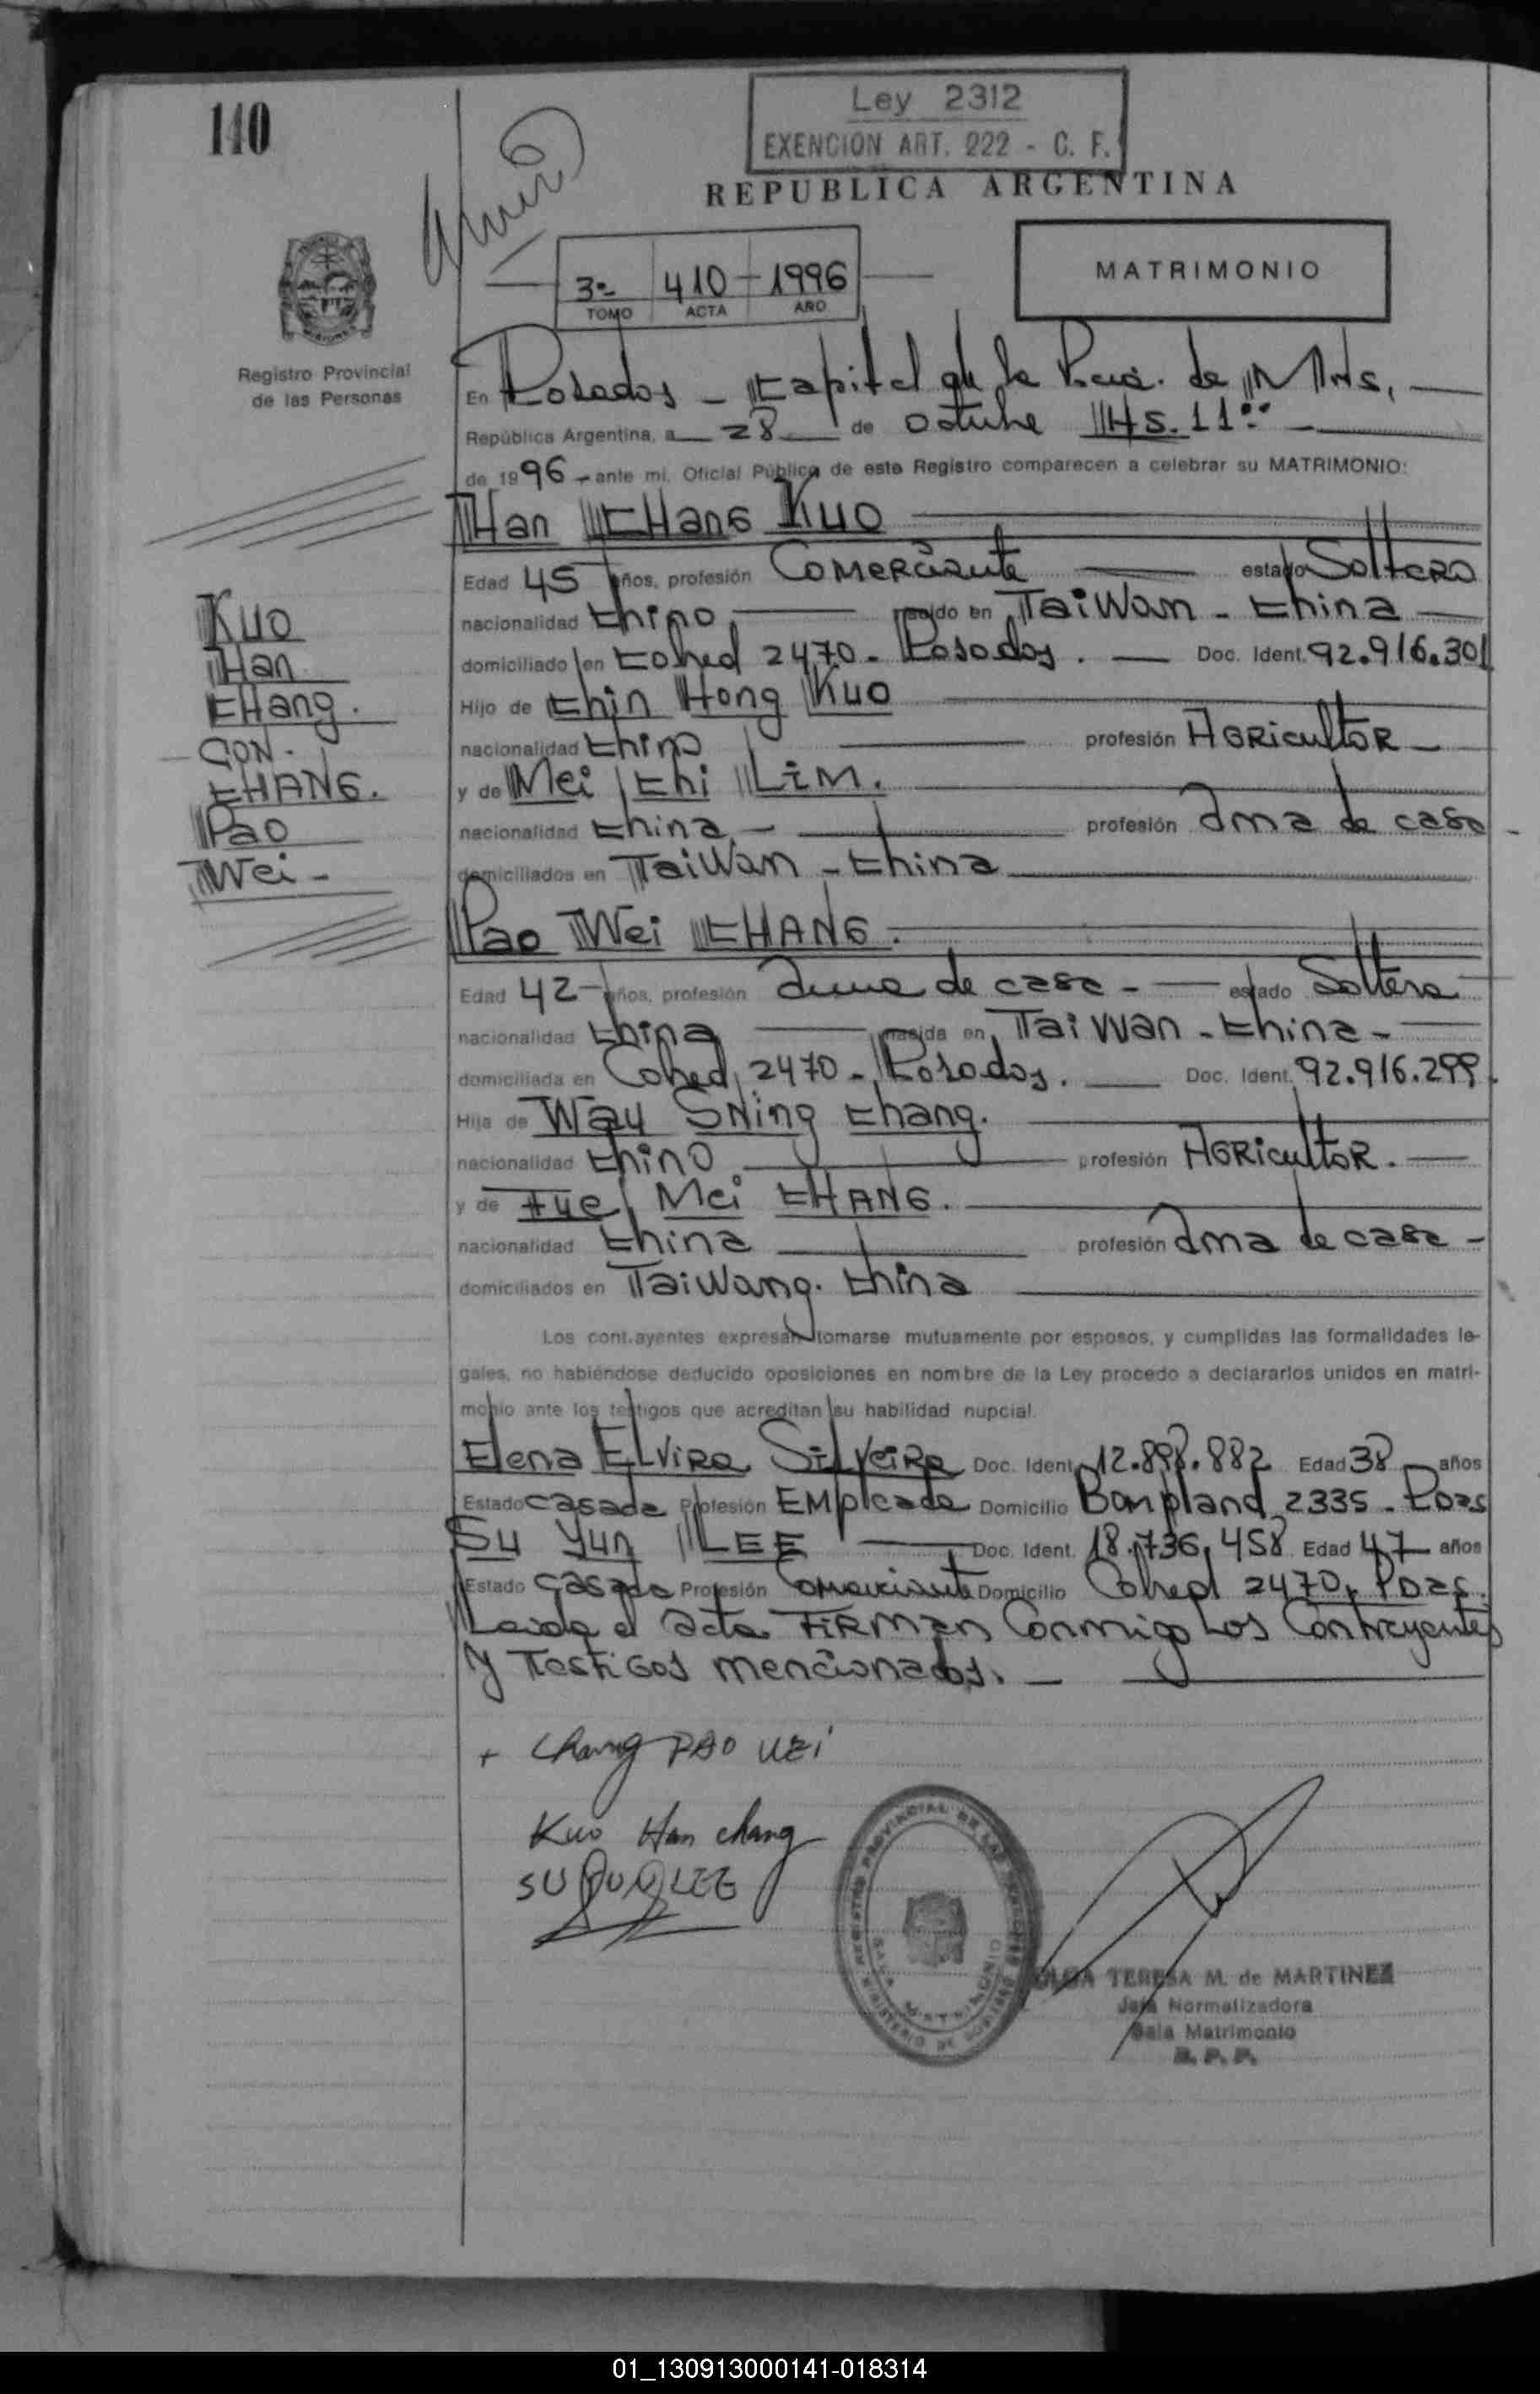 110
Ley 2312
EXENCION ART. 222 - C. F.
REPUBLICA ARGENTINA
3º 410 - 1996
TOMO ACTA AÑO
MATRIMONIO
Registro Provincial
de las Personas
En Posadas - Capital de la Pcia. de Mnes,
República Argentina, a 28 de Octubre Hs. 11:00
de 1996 ante mi, Oficial Público de este Registro comparecen a celebrar su MATRIMONIO:
Han CHang KUO
Edad 45 años, profesión Comerciante estado Soltero
nacionalidad China nacido en Taiwan - China
domiciliado en Cohed 2470 - Posadas. Doc. Ident. 92.916.301
Hijo de Chin Hong KUO
nacionalidad Chino profesión AGRicultoR
y de Mei Chi LiM.
nacionalidad China - profesión Ama de casa
domiciliados en Taiwan - China
KUO
Han
CHang.
CON.
CHANG.
Pao
Wei -
Pao Wei CHANG.
Edad 42 años, profesión Ama de casa - estado Soltera
nacionalidad China nacida en Taiwan - China -
domiciliada en Cohed 2470 - Posadas. Doc. Ident. 92.916.299.
Hija de Way SHing Chang.
nacionalidad Chino profesión AGRicultoR.
y de Mei CHANG.
nacionalidad China profesión Ama de casa -
domiciliados en Taiwang. China
Los contrayentes expresan tomarse mutuamente por esposos, y cumplidas las formalidades le-
gales, no habiéndose deducido oposiciones en nombre de la Ley procedo a declararlos unidos en matri-
monio ante los testigos que acreditan su habilidad nupcial.
Elena Elvira Silveira Doc. Ident. 12.898.882 Edad 38 años
Estado Casada Profesión Empleada Domicilio Bonpland 2335 - Pdas
Su Yun LEE Doc. Ident. 18.736.458 Edad 47 años
Estado Casada Profesión Comerciante Domicilio Cohed 2470, Pdas.
Leida el acta FiRman Conmigo Los Contrayentes
y Testigos mencionados. -
+ Chang PAO WEi
Kuo Han chang
SU YUN LEE
REGISTRO PROVINCIAL DE LAS PERSONAS
SALA MATRIMONIO
MINISTERIO DE GOBIERNO
OLGA TERESA M. de MARTINEZ
Jefa Normalizadora
Sala Matrimonio
R. P. P.
01_130913000141-018314